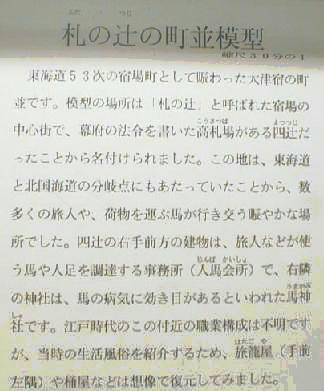 ふだ つじ
札の辻の町並模型
縮尺30分の1
東海道53次の宿場町として賑わった大津宿の町
並です。模型の場所は「札の辻」と呼ばれた宿場の
こうさつば よっつじ
中心街で、幕府の法令を書いた高札場がある四辻だ
ったことから名付けられました。この地は、東海道
と北国海道の分岐点にもあたっていたことから、数
多くの旅人や、荷物を運ぶ馬が行き交う賑やかな場
所でした。四辻の右手前方の建物は、旅人などが使
じんば かいしょ
う馬や人足を調達する事務所(人馬会所)で、右隣
うまがみ
の神社は、馬の病気に効き目があるといわれた馬神
しゃ
社です。江戸時代のこの付近の職業構成は不明です
はたご や
が、当時の生活風俗を紹介するため、旅籠屋(手前
左隅)や桶屋などは想像で復元してみました。